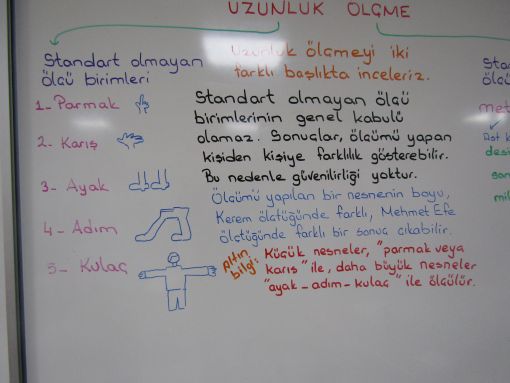 UZUNLUK ÖLÇME
Standart olmayan
ölçü birimleri
1-Parmak
2- Karış
3- Ayak
4- Adım
5- Kulaç
Uzunluk ölçmeyi iki
farklı başlıkta inceleriz.
Standart olmayan ölçü
birimlerinin genel kabulü
olamaz. Sonuçlar, ölçümü yapan
kişiden kişiye farklılık gösterebilir.
Bu nedenle güvenilirliği yoktur.
Ölçümü yapılan bir nesnenin boyu,
Kerem ölçtüğünde farklı, Mehmet Efe
ölçtüğünde farklı bir sonuç çıkabilir.
Altın bilgi: Küçük nesneler, "parmak veya
karış" ile, daha büyük nesneler
"ayak-adım-kulaç" ile ölçülür.